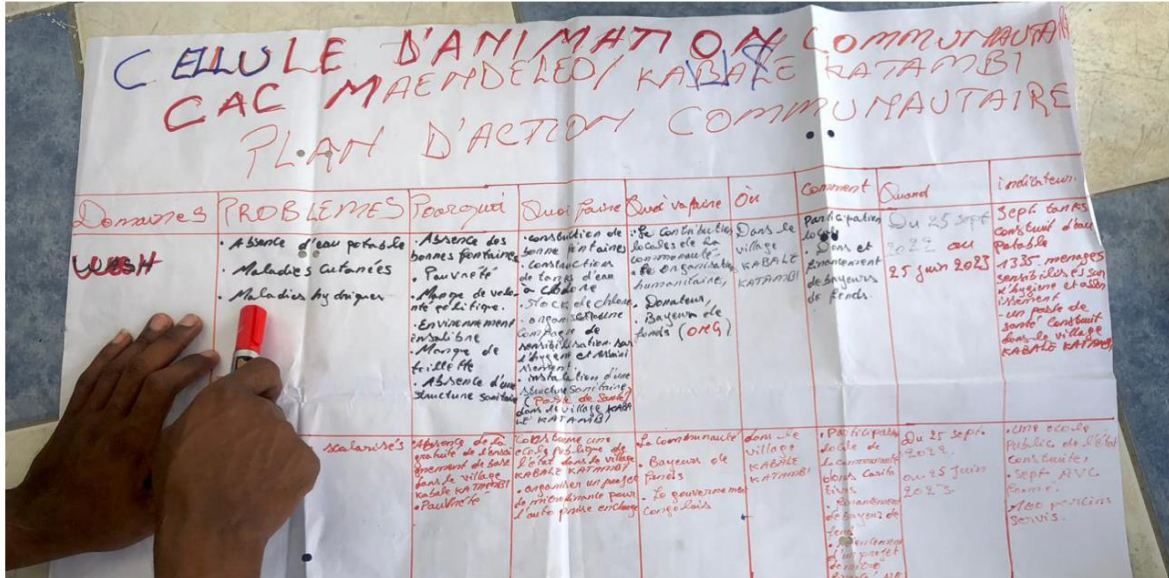 CELLULE D'ANIMATION COMMUNAUTAIRE
CAC MAENDELEO/ KABALE KATAMBI
PLAN D'ACTION COMMUNAUTAIRE
Domaines
PROBLEMES
Pourquoi
Quoi faire
Quoi va faire
Où
Comment
Quand
indicateur.
WASH
• Absence d'eau potable
• Maladies Cutanées
• Maladies hydriques
• Absence des
bonnes fontaines
• Pauvreté
• Manque de volo-
nté politique.
• Environnement
insalubre
• Manque de
• Absence d'une
structure sanitaire
• construction de
borne fontaines
• Construction
de tanqs d'eau
• Stock de chlore
campagne de
sensibilisation sur
• installation d'une
structure sanitaire
(Poste de Santé)
dans le village KABA
LE KATAMBI
• La contribution
locales de la
communauté
humanitaire,
• Donateurs,
• Bayeurs de
fonds (ONG)
Dans le
village
KABALE
KATAMBI
Participation
locale
• Dons et
financement
de bayeurs
de fonds.
Du 25 sept
2022 au
25 juin 2023
Sept tanks
construit d'eau
potable
1335 menages
sensibilisés sur
l'hygiene et assai
nissement
- un poste de
santé construit
dans le village
KABALE KATAMBI
scolarisés
Absence de la
gratuité de l'ensei
gnement de base
dans le village
Kabale KATAMBI
• Pauvreté
Construire une
ecole publique de
l'état dans le village
KABALE KATAMBI
• organiser un projet
de microfinance pour
l'auto prise en charge
La communauté
• Bayeurs de
fonds
• Le gouvernement
Congolais
dans le
village
KABALE
KATAMBI
• Participation
locale de
la communauté
de Bayeur de
fond
Du 25 sept.
2022.
au 25 juin
2023.
• Une ecole
public de l'état
construite,
• sept AVC
servis.